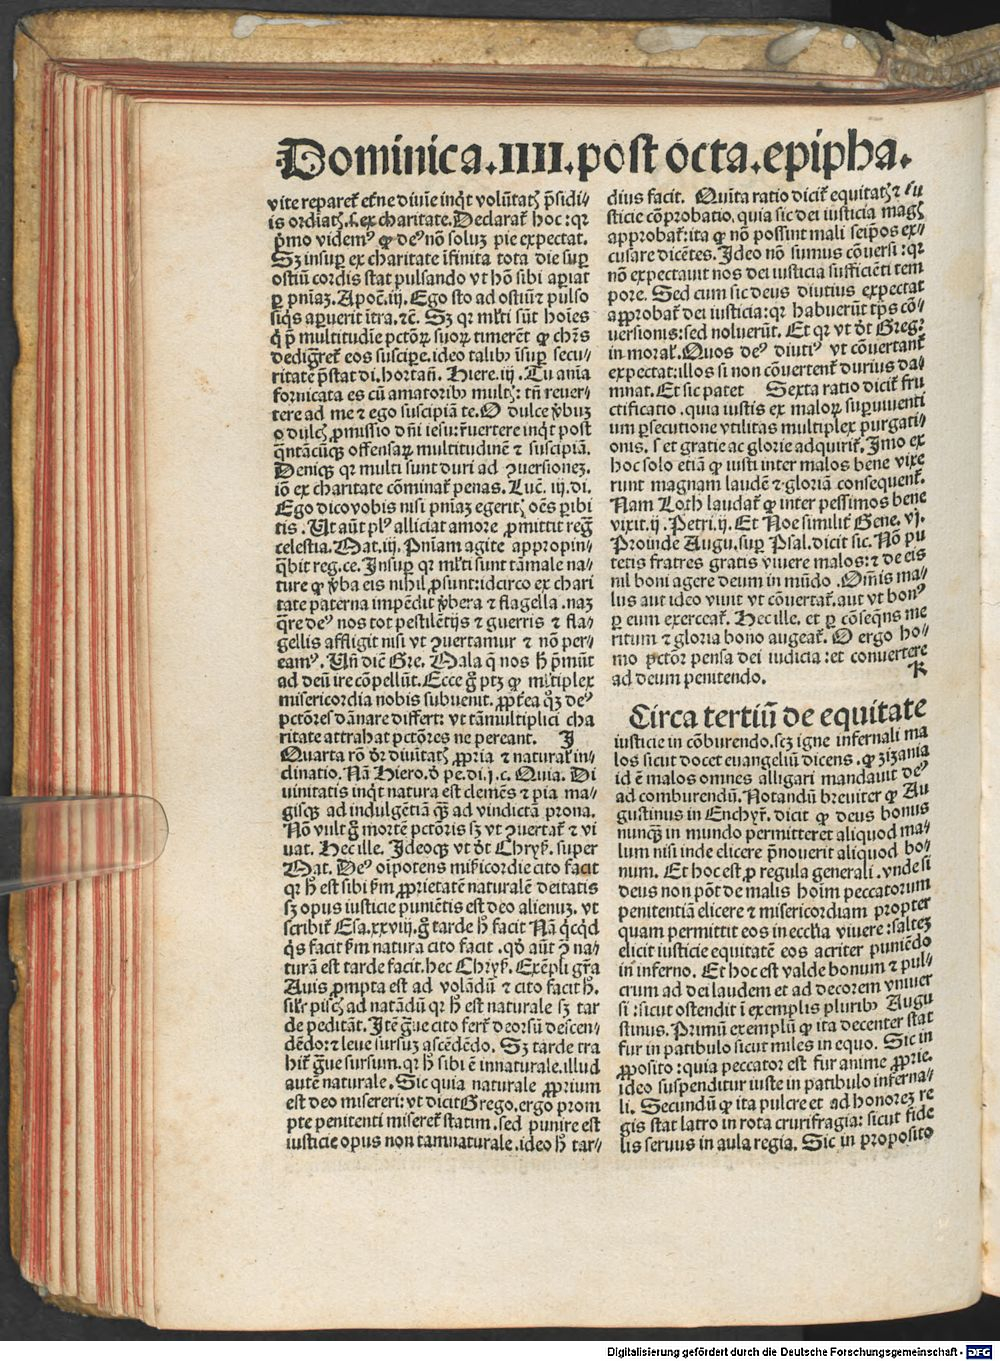 Dominica.IIII.post octa.epipha.
vite repareť etne diuīe inq̇t volūtatꝭ p̄sidij
is ordīatꝭ.ſ.ex charitate.Declarať hoc:qꝛ
p̄mo videmꝰ ꝙ deꝰ nō soluꝫ pie expectat.
Sꝫ insuꝑ ex charitate īfinita tota die suꝑ
ostiū cordis stat pulsando vt hō sibi aꝑiat
ꝑ pnīaꝫ.Apoč.iij. Ego sto ad ostiū ⁊ pulso
siq̇s aꝑuerit ītra.⁊č. Sꝫ qꝛ ml̄ti sūt hoīes
q̇ p̄ multitudīe pctōꝝ suoꝝ timerēt ꝙ chr̄s
dedigr̄eť eos susciꝑe.ideo talibꝰ īsuꝑ secu/
ritatē p̄stat di.hortan̄. Hiere.iij. Tu anīa
fornicata es cū amatoribꝰ multꝭ: tn̄ reuer/
tere ad me ⁊ ego suscipiā te.O dulce v̄buꝫ
o dulcꝭ ꝓmissio dn̄i iesu: r̄uertere inq̇t post
q̄ntācūqꝫ offensaꝝ multitudinē ⁊ suscipiā.
Deniqꝫ qꝛ multi sunt duri ad ꝯuersioneꝫ.
iō ex charitate cōminaꝛ̄ penas. Luč. iij.di.
Ego dico vobis nisi pniaꝫ egeritꝭ oēs ꝑibi
tis . Ut aūt plꝰ alliciat amore ꝓmittit regꝫ
celestia.Mat.iij. Pniam agite appropin/
q̇bit reg.ce. Insuꝑ qꝛ ml̄ti sunt tā male na/
ture ꝙ v̄ba eis nihil ꝓsunt:idcirco ex chari
tate paterna impēdit v̄bera ⁊ flagella .naꝫ
q̄re deꝰ nos tot pestilētijs ⁊ guerris ⁊ fla/
gellis affligit nisi vt ꝯuertamur ⁊ nō per/
eamꝰ. Un̄ dicē Gre. Mala q̄ nos h̄ p̄mūt
ad deū ire cōpellūt.Ecce g̊ ptꝫ ꝙ mltiplex
misericordia nobis subuenit. ꝓpt̄ea qꝫ deꝰ
pctōres dānare differt: vt tā multiplici cha
ritate attrahat pctōres ne pereant. J
Quarta rō dr̄ diuītatꝭ ꝓpria ⁊ naturaꝉ in/
clinatio. Nā Hiero.ď pe.di.j.c. Quia. Di
uinitatis inq̇t natura est clemēs ⁊ pia ma/
gisqꝫ ad indulgētiā qꝫ ad vindictā prona.
Nō vult g̊ mortē pctōris sꝫ vt ꝯuertať ⁊ vi
uat. Hec ille. Ideoqꝫ vt dr̄t Chryꝭ. super
Mat. Deꝰ oīpotens mīꝭicordie cito facit
qꝛ h̄ est sibi ẜm ꝓprietatē naturalē deitatis
sꝫ opus iusticie puniētis est deo alienuꝫ. vt
scribiť Esa.xxviij.g̊ tarde h̄ facit Nā q̇cqd
q̇s facit ẜm natura cito facit .qd̓ aūt ꝯ na/
turā est tarde facit.hec Chryꝭ. Exēpli gr̄a
Auis ꝓmpta est ad volādū ⁊ cito facit h̄.
siꝉr piscꝭ ad natādū qꝛ h̄ est naturale sꝫ tar
de peditāt. Jtē g̓ue cito ferť deorsū descen/
dēdo: ⁊ leue sursuꝫ ascēdēdo. Sꝫ tarde tra
hiť g̓ue sursum.qꝛ h̄ sibi ē innaturale.illud
autē naturale . Sic quia naturale ꝓprium
est deo misereri: vt dicit Grego.ergo prom
pte penitenti misereť statim.sed punire est
iusticie opus non tam naturale .ideo h̄ tar/
dius facit. Quīta ratio diciť equitatꝭ ⁊ iu
sticie cōprobatio. quia sic dei iusticia magꝭ
approbaꝛ̄: ita ꝙ nō possint mali seip̄os ex/
cusare dicētes. Ideo nō sumus cōuersi : qꝛ
nō expectauit nos dei iusticia sufficiēti tem
pore. Sed cum sic deus diutius expectat
approbať dei iusticia: qꝛ habuerūt tp̄s cō/
uersionis:sed noluerūt. Et qꝛ vt dr̄t Greg:
in moraꝉ. Quos deꝰ diutiꝰ vt cōuertanť
expectat:illos si non cōuertenť durius da/
mnat. Et sic patet Sexta ratio diciť fru
ctificatio . quia iustis ex maloꝝ suꝑuiuenti
um ꝑsecutione vtilitas multiplex purgati/
onis. ſ et gratie ac glorie adquiriť. Jmo ex
hoc solo etiā ꝙ iusti inter malos bene vixe
runt magnam laudē ⁊ gloriā consequenť.
Nam Loth laudať ꝙ inter pessimos bene
vixit.ij . Petri.ij. Et Noe similiť Gene. vj.
Proinde Augu.suꝑ Psal.dicit sic. Nō pu
tetis fratres gratis viuere malos: ⁊ de eis
nil boni agere deum in mūdo . Omīs ma/
lus aut ideo viuit vt cōuertať.aut vt bonꝰ
ꝑ eum exerceať. Hec ille. et ꝑ cōseq̄ns me
ritum ⁊ gloria bono augeať. O ergo ho/
mo pctōr pensa dei iudicia: et conuertere
ad deum penitendo. K
Circa tertiū de equitate
iusticie in cōburendo.scꝫ igne infernali ma
los sicut docet euangeliū dicens. ꝙ zizania
id ē malos omnes alligari mandauit deꝰ
ad comburendū. Notandū breuiter ꝙ Au
gustinus in Enchyr̄. dicit ꝙ deus bonus
nunqꝫ in mundo permitteret aliquod ma/
lum nisi inde elicere p̄nouerit aliquod bo/
num. Et hoc est ꝓ regula generali . vnde si
deus non pōt de malis hoīm peccatorum
penitentiā elicere ⁊ misericordiam propter
quam permittit eos in eccľia viuere : salteꝫ
elicit iusticie equitatē eos acriter puniēdo
in inferno. Et hoc est valde bonum ⁊ pul/
crum ad dei laudem et ad decorem vniuer
si : sicut ostendit ī exemplis pluribꝰ Augu
stinus. Primū exemplū ꝙ ita decenter stat
fur in patibulo sicut miles in equo. Sic in
ꝓposito : quia peccator est fur anime ꝓprie.
ideo suspenditur iuste in patibulo inferna/
li. Secundū ꝙ ita pulcre et ad honoreꝫ re
gis stat latro in rota crurifragia: sicut fide
lis seruus in aula regia. Sic in proposito
Digitalisierung gefördert durch die Deutsche Forschungsgemeinschaft - DFG